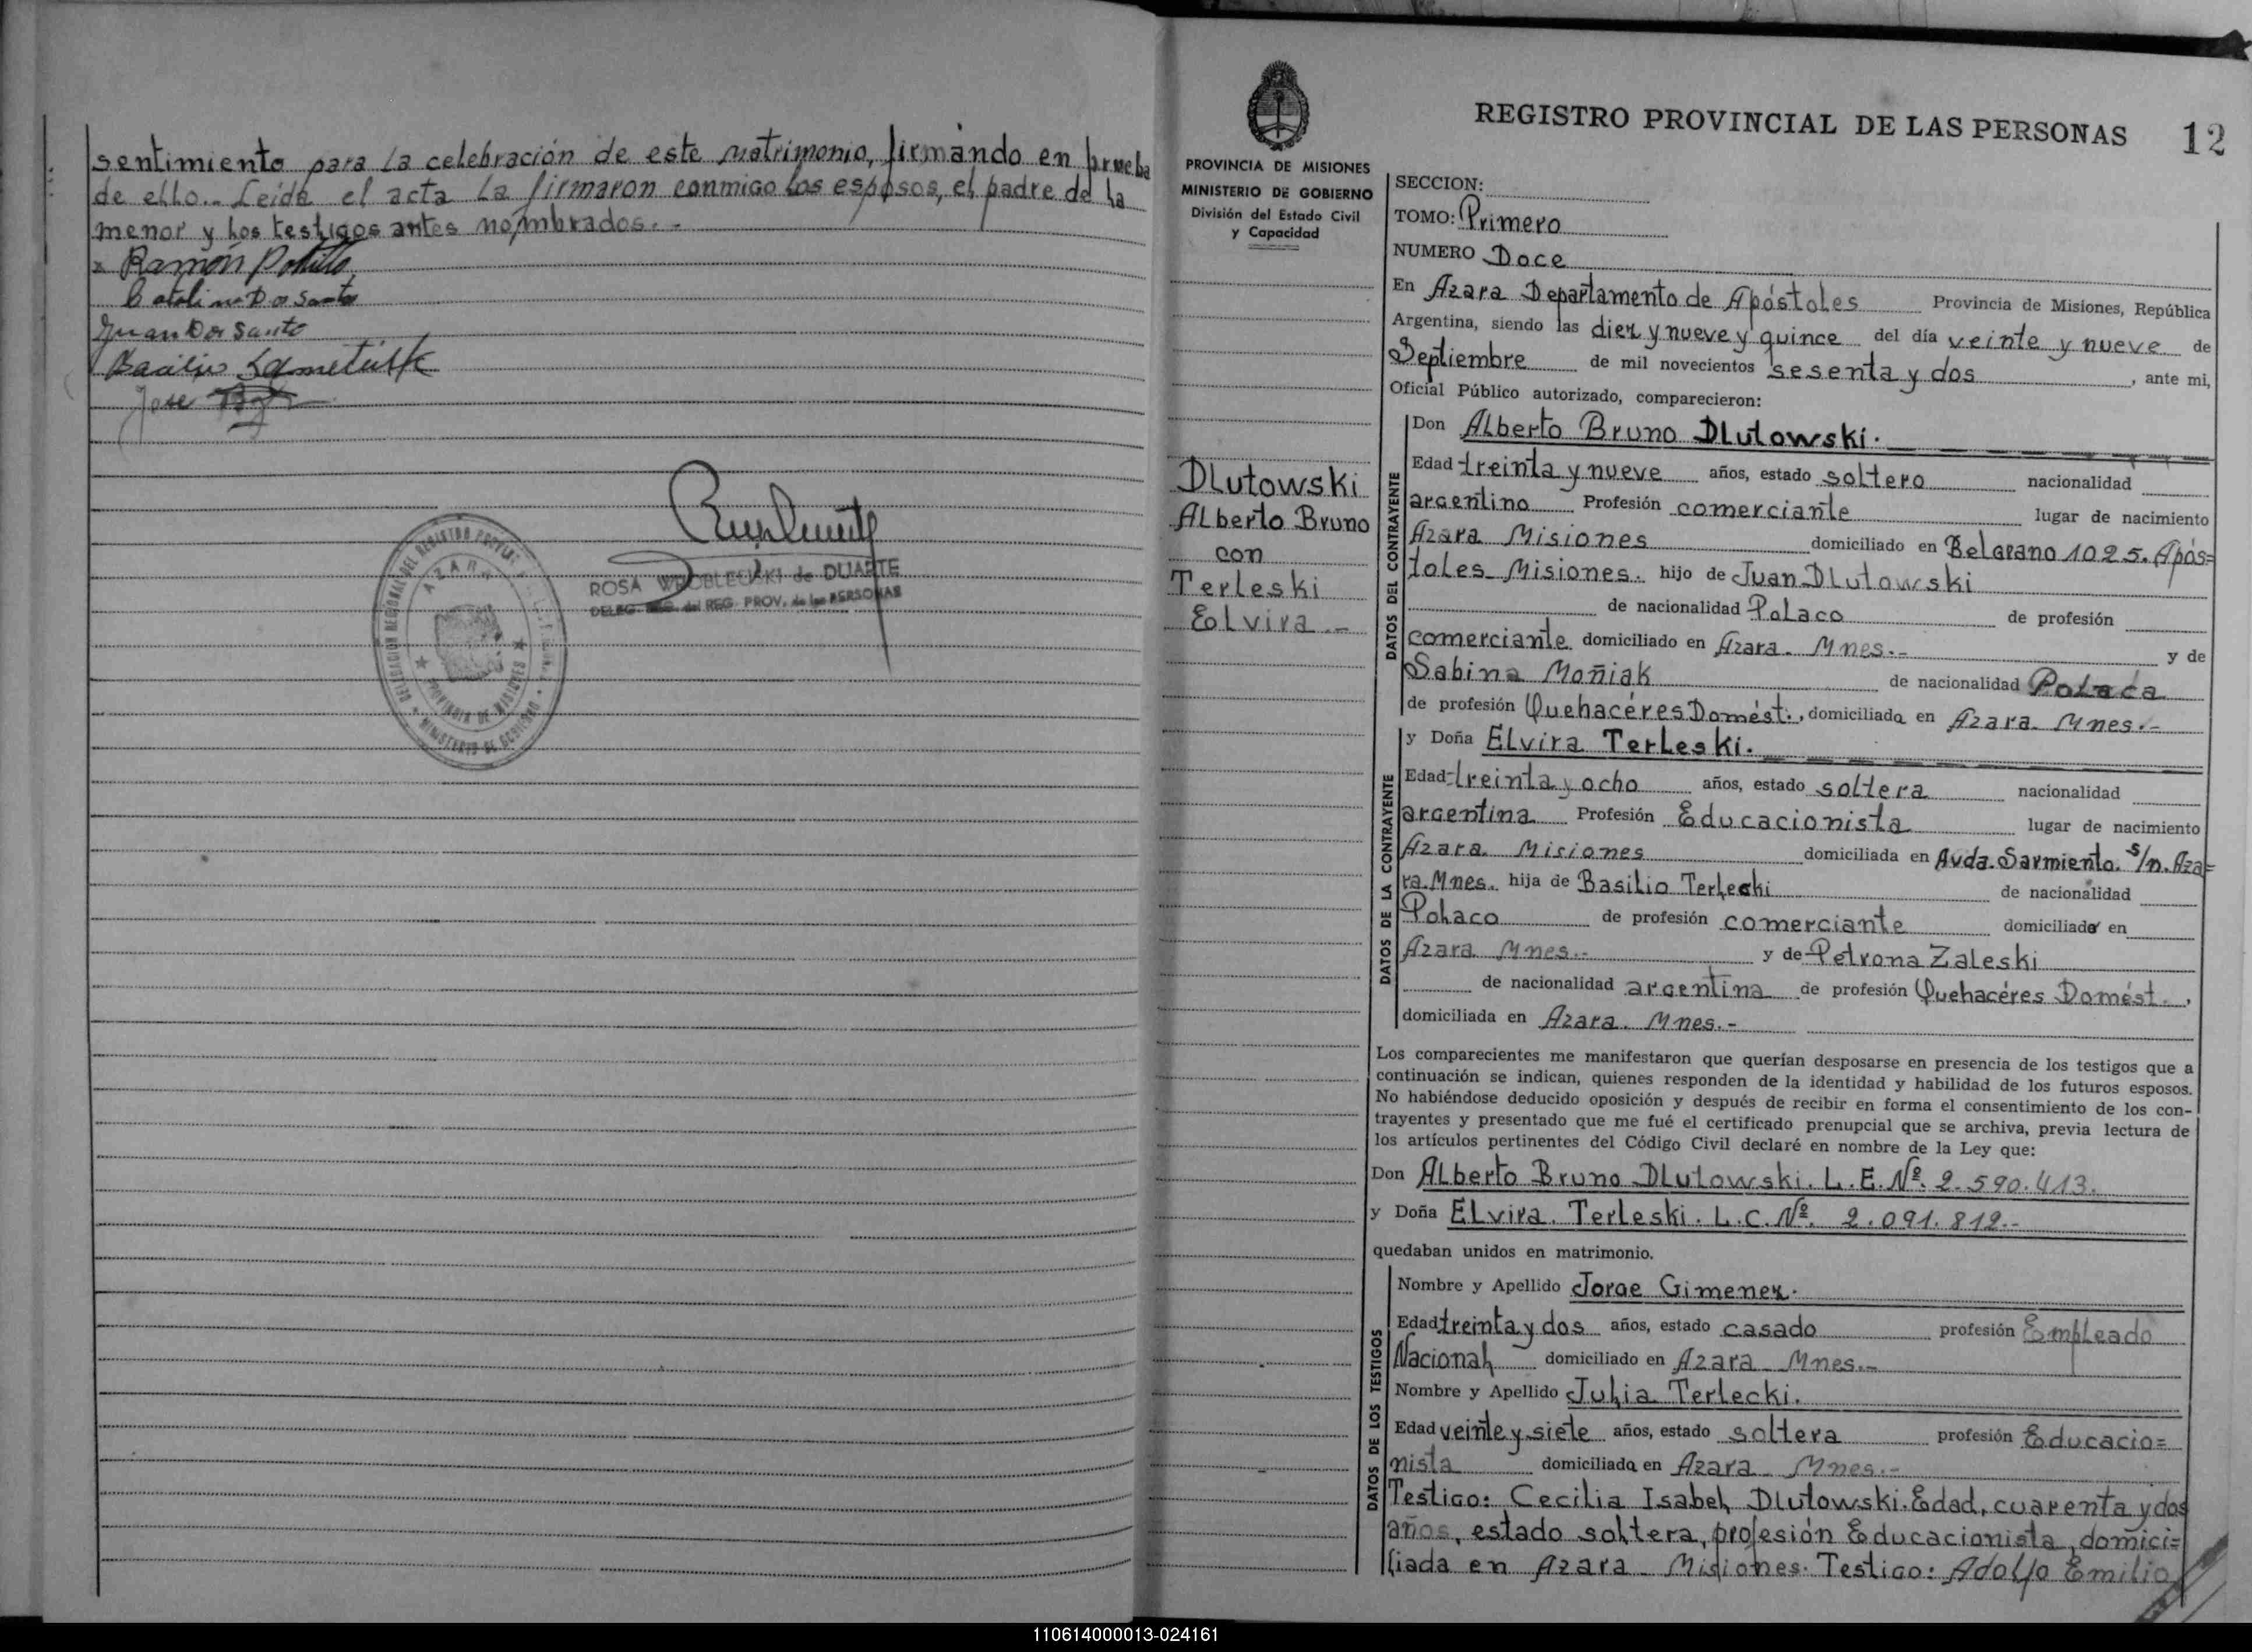 sentimiento para la celebración de este matrimonio, firmando en prueba
de ello.- Leída el acta la firmaron conmigo los esposos, el padre de la
menor y los testigos antes nombrados.-
Ramón
Catalina Dos Santos
Juan Dos Santo
Basilio
Jose
ROSA WROBLEUSKI de DUARTE
DELEG. REG. del REG. PROV. de las PERSONAS
DELEGACION REGIONAL DEL REGISTRO
AZARA
PROVINCIA DE MISIONES
MINISTERIO DE GOBIERNO
REGISTRO PROVINCIAL DE LAS PERSONAS
12
PROVINCIA DE MISIONES
MINISTERIO DE GOBIERNO
División del Estado Civil
y Capacidad
DLutowski
Alberto Bruno
con
Terleski
Elvira.-
SECCION:
TOMO: Primero
NUMERO Doce
En Azara Departamento de Apóstoles Provincia de Misiones, República
Argentina, siendo las diez y nueve y quince del día veinte y nueve de
Septiembre de mil novecientos sesenta y dos, ante mi,
Oficial Público autorizado, comparecieron:
DATOS DEL CONTRAYENTE
Don Alberto Bruno DLutowski.
Edad treinta y nueve años, estado soltero nacionalidad
argentino Profesión comerciante lugar de nacimiento
Azara Misiones domiciliado en Belgrano 1025. Após=
toles Misiones. hijo de Juan DLutowski
de nacionalidad Polaco de profesión
comerciante domiciliado en Azara. Mnes.- y de
Sabina Moñiak de nacionalidad Polaca
de profesión Quehacéres Domést., domiciliada en Azara. Mnes.-
DATOS DE LA CONTRAYENTE
y Doña Elvira Terleski.
Edad treinta y ocho años, estado soltera nacionalidad
argentina Profesión Educacionista lugar de nacimiento
Azara. Misiones domiciliada en Avda. Sarmiento. s/n. Aza=
ra. Mnes. hija de Basilio Terleski de nacionalidad
Polaco de profesión comerciante domiciliado en
Azara Mnes.- y de Petrona Zaleski
de nacionalidad argentina de profesión Quehacéres Domést.,
domiciliada en Azara. Mnes.-
Los comparecientes me manifestaron que querían desposarse en presencia de los testigos que a
continuación se indican, quienes responden de la identidad y habilidad de los futuros esposos.
No habiéndose deducido oposición y después de recibir en forma el consentimiento de los con-
trayentes y presentado que me fué el certificado prenupcial que se archiva, previa lectura de
los artículos pertinentes del Código Civil declaré en nombre de la Ley que:
Don Alberto Bruno DLutowski. L.E. Nº. 2.590.413.
y Doña Elvira. Terleski. L.C. Nº. 2.091.812.-
quedaban unidos en matrimonio.
DATOS DE LOS TESTIGOS
Nombre y Apellido Jorge Gimenez.
Edad treinta y dos años, estado casado profesión Empleado
Nacional domiciliado en Azara Mnes.-
Nombre y Apellido Julia Terlecki.
Edad veinte y siete años, estado soltera profesión Educacio=
nista domiciliada en Azara Mnes.-
Testigo: Cecilia Isabel DLutowski. Edad, cuarenta y dos
años, estado soltera, profesión Educacionista, domici=
liada en Azara Misiones. Testigo: Adolfo Emilio
110614000013-024161